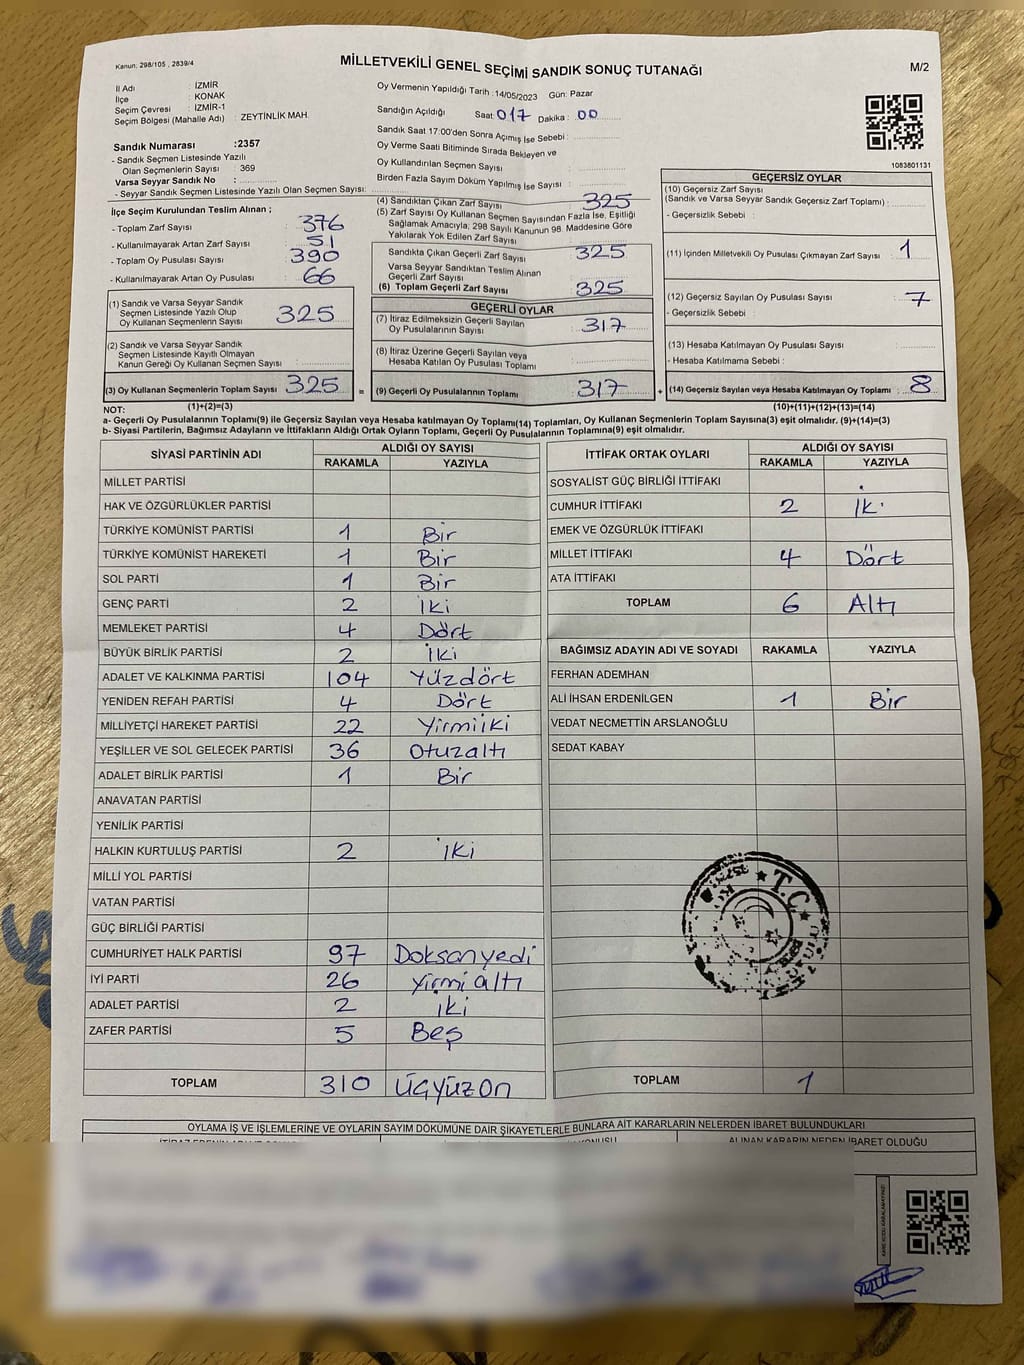 Kanun; 298/105 , 2839/4
MİLLETVEKİLİ GENEL SEÇİMİ SANDIK SONUÇ TUTANAĞI
M/2
İl Adı : İZMİR
İlçe : KONAK
Seçim Çevresi : İZMİR-1
Seçim Bölgesi (Mahalle Adı) : ZEYTİNLİK MAH.
Sandık Numarası :2357
- Sandık Seçmen Listesinde Yazılı
Olan Seçmenlerin Sayısı : 369
Varsa Seyyar Sandık No :
- Seyyar Sandık Seçmen Listesinde Yazılı Olan Seçmen Sayısı:
Oy Vermenin Yapıldığı Tarih :14/05/2023 Gün: Pazar
Sandığın Açıldığı Saat :017 Dakika : 00
Sandık Saat 17:00'den Sonra Açımış İse Sebebi :
Oy Verme Saati Bitiminde Sırada Bekleyen ve
Oy Kullandırılan Seçmen Sayısı :
Birden Fazla Sayım Döküm Yapılmış İse Sayısı :
1083801131
İlçe Seçim Kurulundan Teslim Alınan ;
- Toplam Zarf Sayısı : 376
- Kullanılmayarak Artan Zarf Sayısı : 51
- Toplam Oy Pusulası Sayısı : 390
- Kullanılmayarak Artan Oy Pusulası : 66
(1) Sandık ve Varsa Seyyar Sandık
Seçmen Listesinde Yazılı Olup
Oy Kullanan Seçmenlerin Sayısı : 325
(2) Sandık ve Varsa Seyyar Sandık
Seçmen Listesinde Kayıtlı Olmayan
Kanun Gereği Oy Kullanan Seçmen Sayısı :
(3) Oy Kullanan Seçmenlerin Toplam Sayısı : 325
(4) Sandıktan Çıkan Zarf Sayısı : 325
(5) Zarf Sayısı Oy Kullanan Seçmen Sayısından Fazla İse, Eşitliği
Sağlamak Amacıyla; 298 Sayılı Kanunun 98. Maddesine Göre
Yakılarak Yok Edilen Zarf Sayısı :
Sandıkta Çıkan Geçerli Zarf Sayısı : 325
Varsa Seyyar Sandıktan Teslim Alınan
Geçerli Zarf Sayısı :
(6) Toplam Geçerli Zarf Sayısı : 325
GEÇERLİ OYLAR
(7) İtiraz Edilmeksizin Geçerli Sayılan
Oy Pusulalarının Sayısı : 317
(8) İtiraz Üzerine Geçerli Sayılan veya
Hesaba Katılan Oy Pusulası Toplamı :
= (9) Geçerli Oy Pusulalarının Toplamı : 317
GEÇERSİZ OYLAR
(10) Geçersiz Zarf Sayısı
(Sandık ve Varsa Seyyar Sandık Geçersiz Zarf Toplamı) :
- Geçersizlik Sebebi :
(11) İçinden Milletvekili Oy Pusulası Çıkmayan Zarf Sayısı : 1
(12) Geçersiz Sayılan Oy Pusulası Sayısı : 7
- Geçersizlik Sebebi :
(13) Hesaba Katılmayan Oy Pusulası Sayısı :
- Hesaba Katılmama Sebebi :
+ (14) Geçersiz Sayılan veya Hesaba Katılmayan Oy Toplamı : 8
NOT: (1)+(2)=(3) (10)+(11)+(12)+(13)=(14)
a- Geçerli Oy Pusulalarının Toplamı(9) ile Geçersiz Sayılan veya Hesaba katılmayan Oy Toplamı(14) Toplamları, Oy Kullanan Seçmenlerin Toplam Sayısına(3) eşit olmalıdır. (9)+(14)=(3)
b- Siyasi Partilerin, Bağımsız Adayların ve İttifakların Aldığı Ortak Oyların Toplam, Geçerli Oy Pusulalarının Toplamına(9) eşit olmalıdır.
SİYASİ PARTİNİN ADI ALDIĞI OY SAYISI
RAKAMLA YAZIYLA
MİLLET PARTİSİ
HAK VE ÖZGÜRLÜKLER PARTİSİ
TÜRKİYE KOMÜNİST PARTİSİ 1 Bir
TÜRKİYE KOMÜNİST HAREKETİ 1 Bir
SOL PARTİ 1 Bir
GENÇ PARTİ 2 İki
MEMLEKET PARTİSİ 4 Dört
BÜYÜK BİRLİK PARTİSİ 2 İki
ADALET VE KALKINMA PARTİSİ 104 Yüzdört
YENİDEN REFAH PARTİSİ 4 Dört
MİLLİYETÇİ HAREKET PARTİSİ 22 Yirmiiki
YEŞİLLER VE SOL GELECEK PARTİSİ 36 Otuzaltı
ADALET BİRLİK PARTİSİ 1 Bir
ANAVATAN PARTİSİ
YENİLİK PARTİSİ
HALKIN KURTULUŞ PARTİSİ 2 İki
MİLLİ YOL PARTİSİ
VATAN PARTİSİ
GÜÇ BİRLİĞİ PARTİSİ
CUMHURİYET HALK PARTİSİ 97 Doksanyedi
İYİ PARTİ 26 Yirmialtı
ADALET PARTİSİ 2 İki
ZAFER PARTİSİ 5 Beş
TOPLAM 310 ÜÇYÜZON
İTTİFAK ORTAK OYLARI ALDIĞI OY SAYISI
RAKAMLA YAZIYLA
SOSYALİST GÜÇ BİRLİĞİ İTTİFAKI
CUMHUR İTTİFAKI 2 İki
EMEK VE ÖZGÜRLÜK İTTİFAKI
MİLLET İTTİFAKI 4 Dört
ATA İTTİFAKI
TOPLAM 6 Altı
BAĞIMSIZ ADAYIN ADI VE SOYADI RAKAMLA YAZIYLA
FERHAN ADEMHAN
ALİ İHSAN ERDENİLGEN 1 Bir
VEDAT NECMETTİN ARSLANOĞLU
SEDAT KABAY
T.C.
TOPLAM 1
OYLAMA İŞ VE İŞLEMLERİNE VE OYLARIN SAYIM DÖKÜMÜNE DAİR ŞİKAYETLERLE BUNLARA AİT KARARLARIN NELERDEN İBARET BULUNDUKLARI
ALINAN KARARIN NEDEN İBARET OLDUĞU